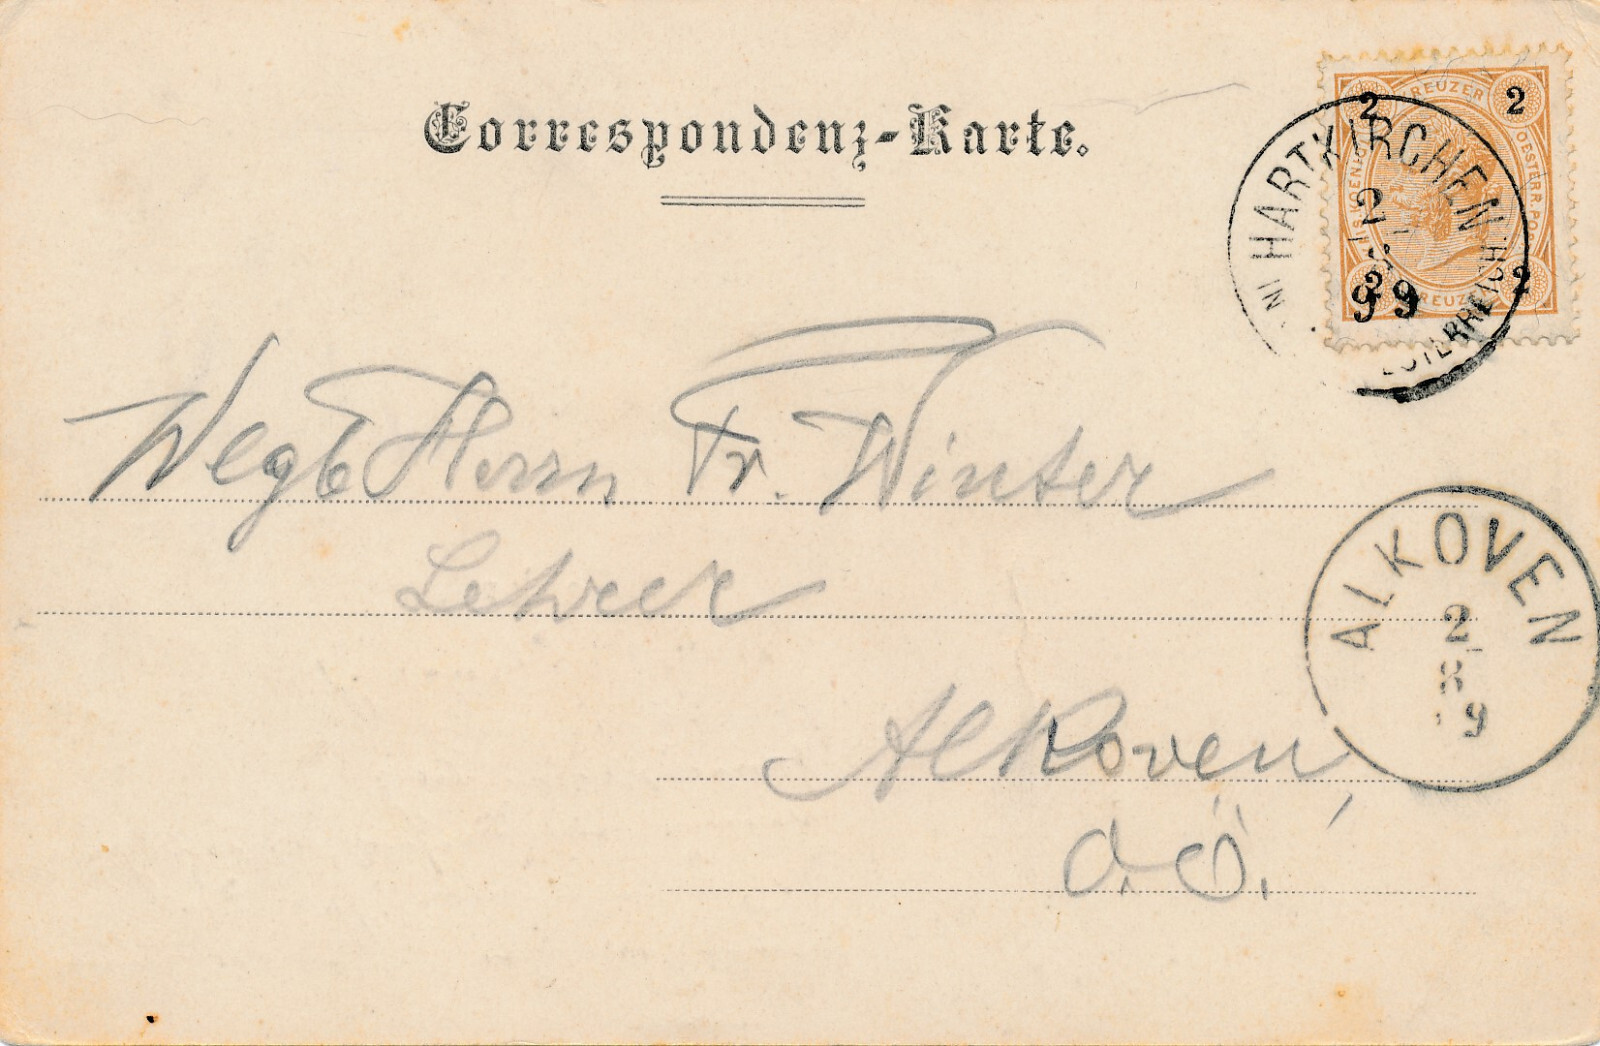 Correspondenz-Karte.
2 KREUZER 2
OESTERR. POST
2 KREUZER 2
HARTKIRCHEN IN OESTERREICH
2
99
Wlgb Herrn Fr. Winter
Lehrer
Alkoven,
O.Ö.
ALKOVEN
2
8
9